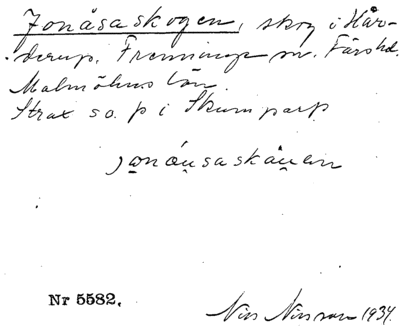 Jonåsaskogen, skog i Hår-
derup, Frenninge sn. Färs hd.
Malmöhus län.
Strax so. þ i Skumparp
Nr 5582.
Nils Nilsson 1934.